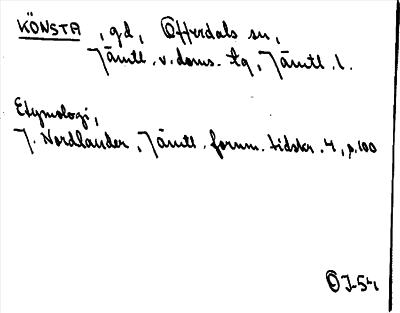 KÖNSTA, gd, Offerdals sn,
Jämtl. v. doms. tg, Jämtl. l.
Etymologi,
J. Nordlander, Jämtl. fornm. tidskr. 4, p. 100